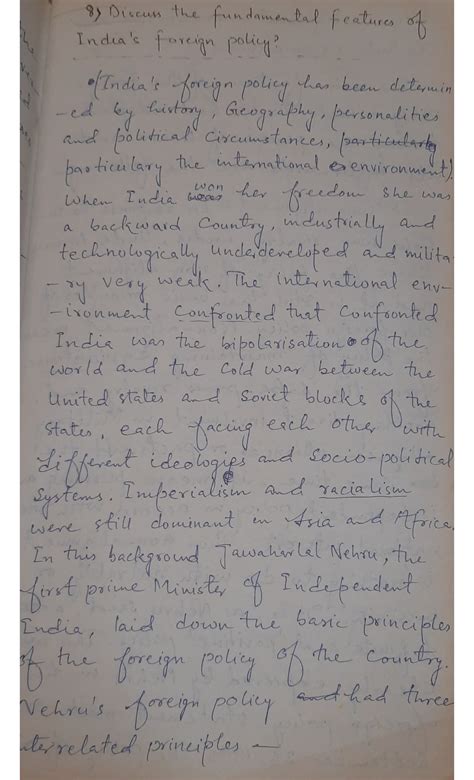 8) Discuss the fundamental features of
India's foreign policy?
(India's foreign policy has been determin
-ed by history, Geography, personalities
and political Circumstances, particularly
particulary the international environment).
When India won her freedom she was
a backward Country, industrially and
technologically underdeveloped and milita
-ry very weak. The International env-
-ironment Confronted that Confronted
India was the bipolarisation of the
world and the Cold war between the
United states and Soviet blocks of the
States, each facing each other with
different ideologies and Socio-political
Systems. Imperialism and racialism
were still dominant in Asia and Africa.
In this background Jawaharlal Nehru, the
first prime Minister of Independent
India, laid down the basic principles
of the foreign policy of the Country.
Nehru's foreign policy and had three
interrelated principles —